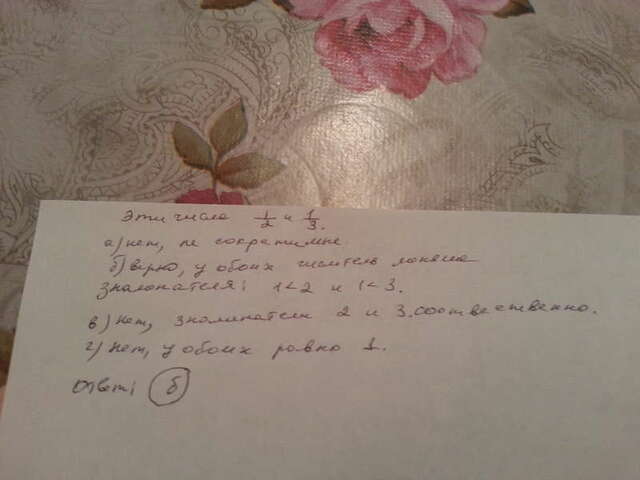 Эти числа 1/2 и 1/3.
а) нет, не сократимые.
б) верно, у обоих числитель меньше
знаменателя: 1<2 и 1<3.
в) Нет, знаменатели 2 и 3. соответственно.
г) Нет, у обоих равно 1.
Ответ: б